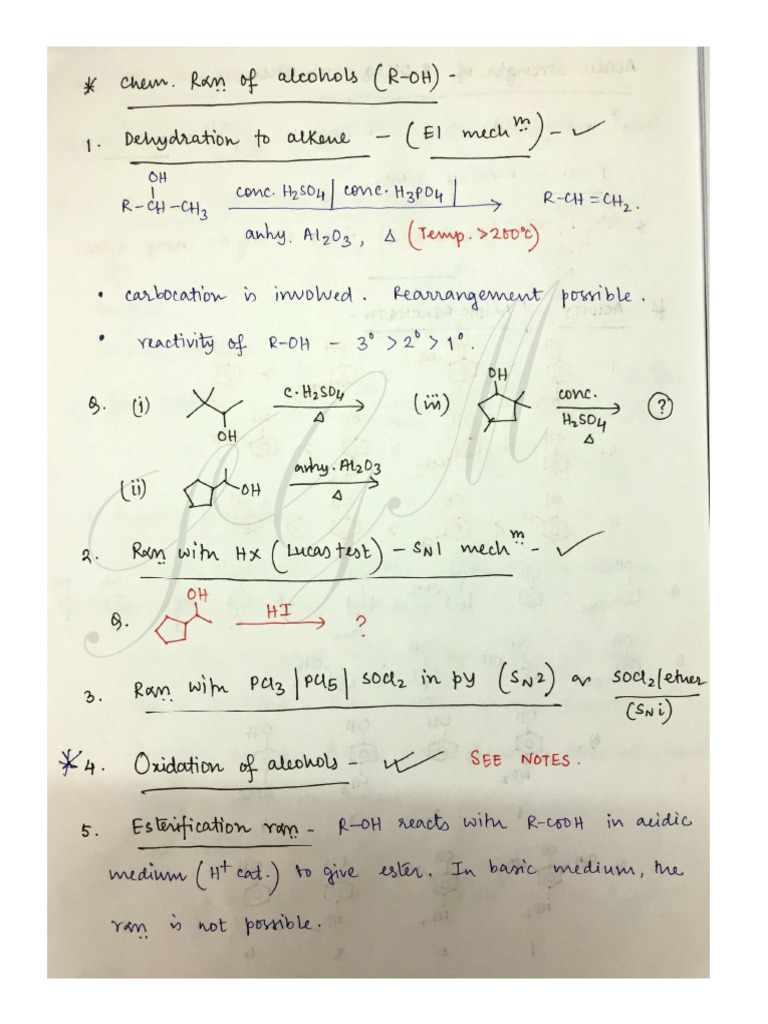 * Chem. Rxn of alcohols (R-OH) -
1. Dehydration to alkene - (E1 mech^m) - ✓
OH
R-CH-CH3 conc. H2SO4 | conc. H3PO4 | R-CH=CH2.
anhy. Al2O3, Δ (Temp. >200°C)
• carbocation is involved. Rearrangement possible.
• reactivity of R-OH - 3° > 2° > 1°.
Q. (i) OH c. H2SO4 Δ (iii) OH conc. H2SO4 Δ (?)
(ii) OH anhy. Al2O3 Δ
2. Rxn with HX (Lucas test) - SN1 mech^m - ✓
Q. OH HI ?
3. Rxn with PCl3 | PCl5 | SOCl2 in py (SN2) or SOCl2/ether
(SNi)
* 4. Oxidation of alcohols - ✓ SEE NOTES.
5. Esterification rxn - R-OH reacts with R-COOH in acidic
medium (H+ cat.) to give ester. In basic medium, the
rxn is not possible.
SGM